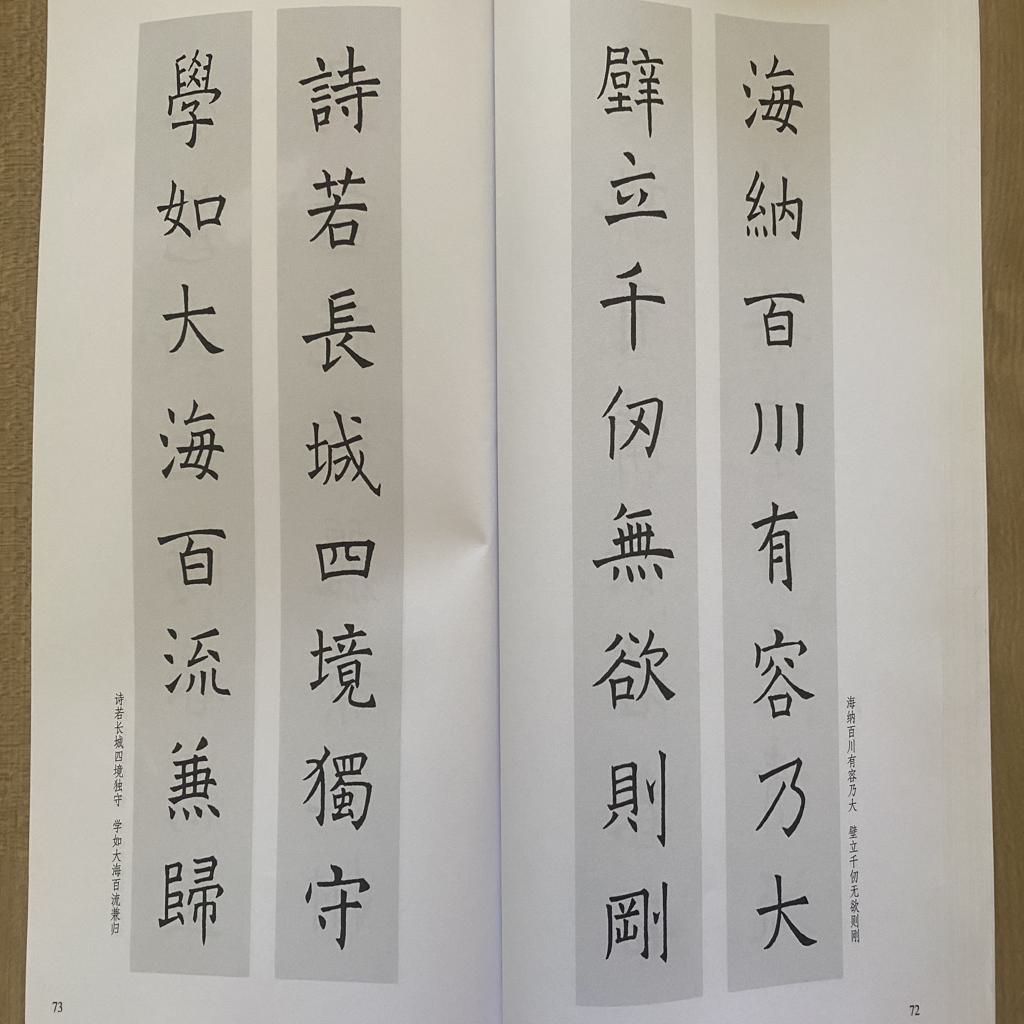 海納百川有容乃大
壁立千仞無欲則剛
海纳百川有容乃大　壁立千仞无欲则刚
72
詩若長城四境獨守
學如大海百流兼歸
诗若长城四境独守　学如大海百流兼归
73